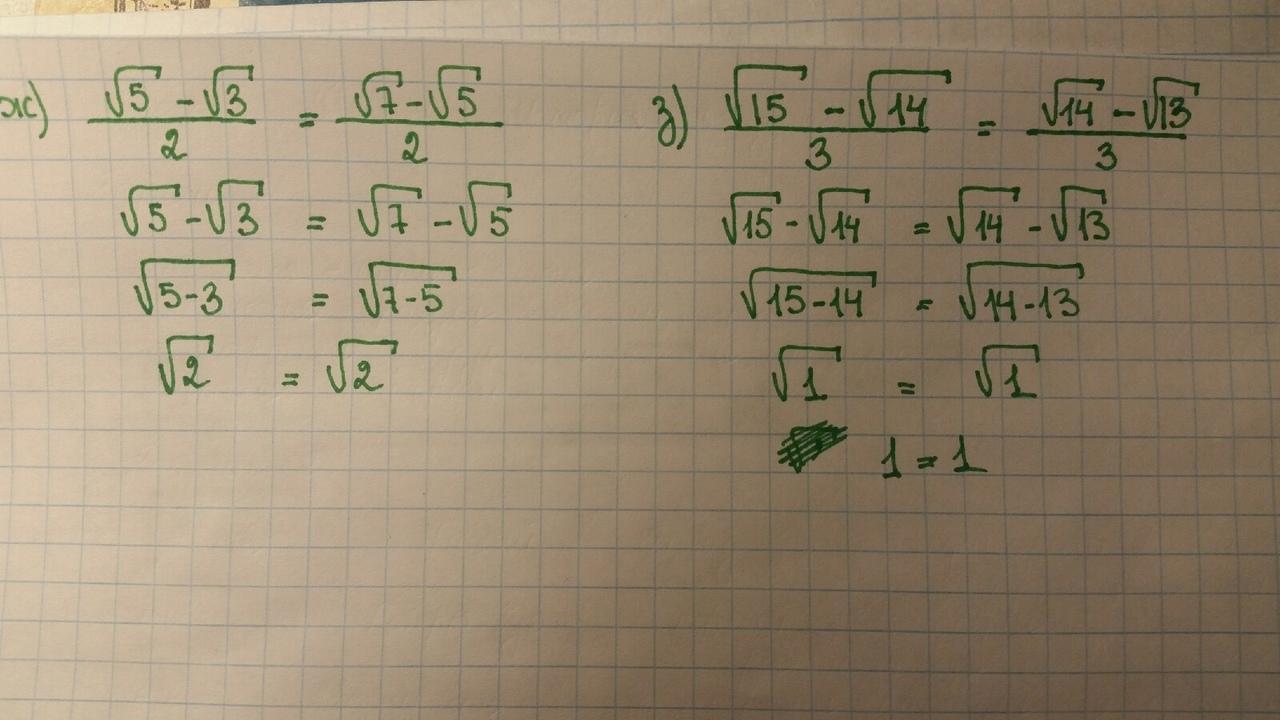 ж) (√5 - √3)/2 = (√7 - √5)/2
√5 - √3 = √7 - √5
√(5-3) = √(7-5)
√2 = √2
з) (√15 - √14)/3 = (√14 - √13)/3
√15 - √14 = √14 - √13
√(15-14) = √(14-13)
√1 = √1
1 = 1